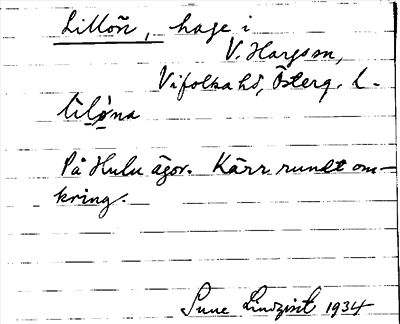 Lillön, hage i
V. Hargs sn,
Vifolka hd, Österg. l.
lìlø̀na
På Hulu ägor. Kärr rundt om-
kring.
Sune Lindqvist 1934